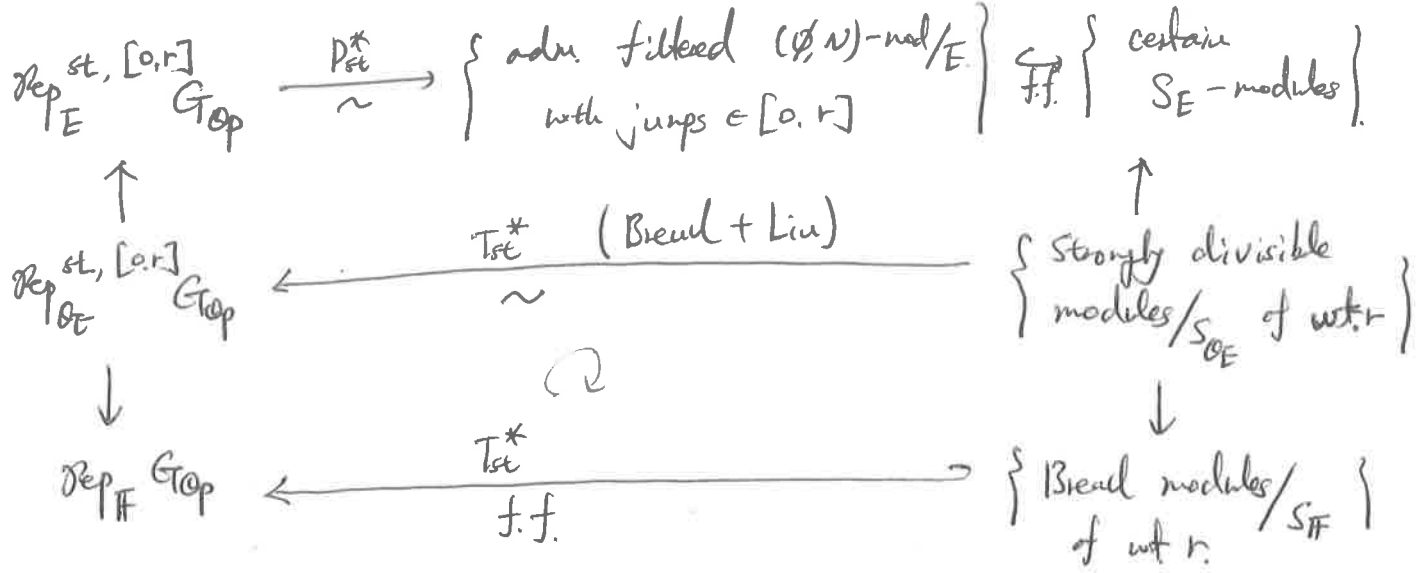 Rep_E^{st, [0,r]} G_{Qp} \xrightarrow[\sim]{D_{st}^*} { adm. filtered (φ,N)-mod/E with jumps ∈ [0, r] } \underset{f.f.}{↪} { certain S_E-modules }.
↑ ↑
Rep_{O_E}^{st, [0,r]} G_{Qp} \xleftarrow[\sim]{T_{st}^* (Breuil + Liu)} { Strongly divisible modules/S_{O_E} of wt. r }
↓ ↓
Rep_F G_{Qp} \xleftarrow[f.f.]{T_{st}^*} { Breuil modules/S_F of wt r. }